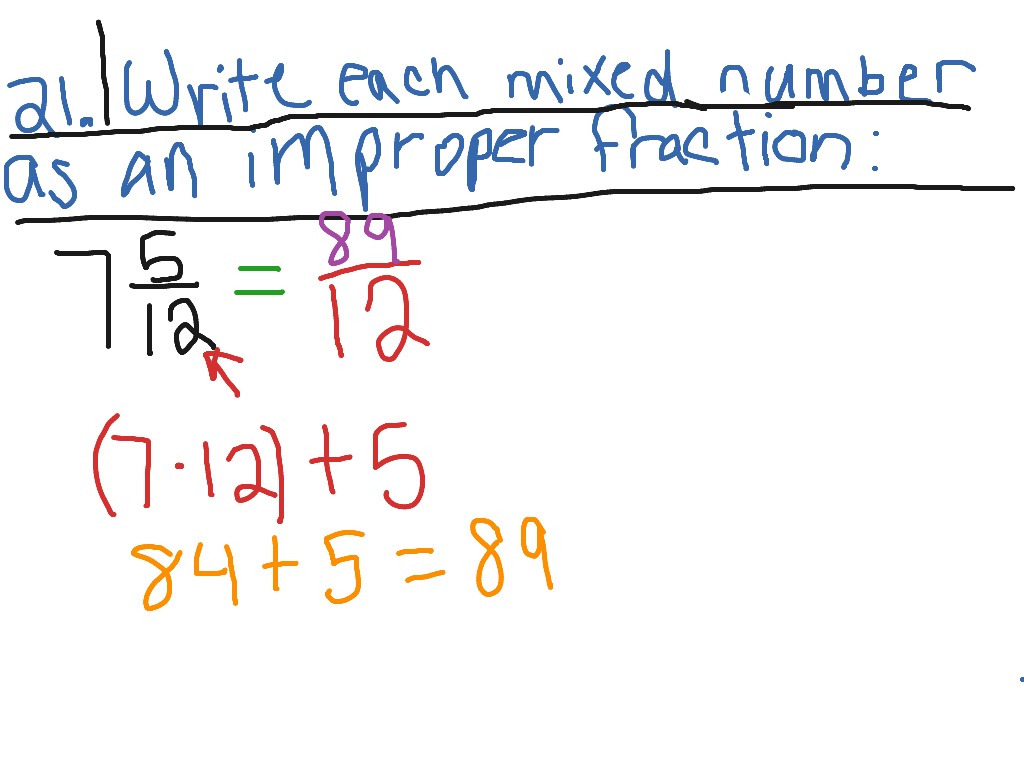 21. Write each mixed number
as an improper fraction:
7 5/12 = 89/12
(7·12) + 5
84 + 5 = 89